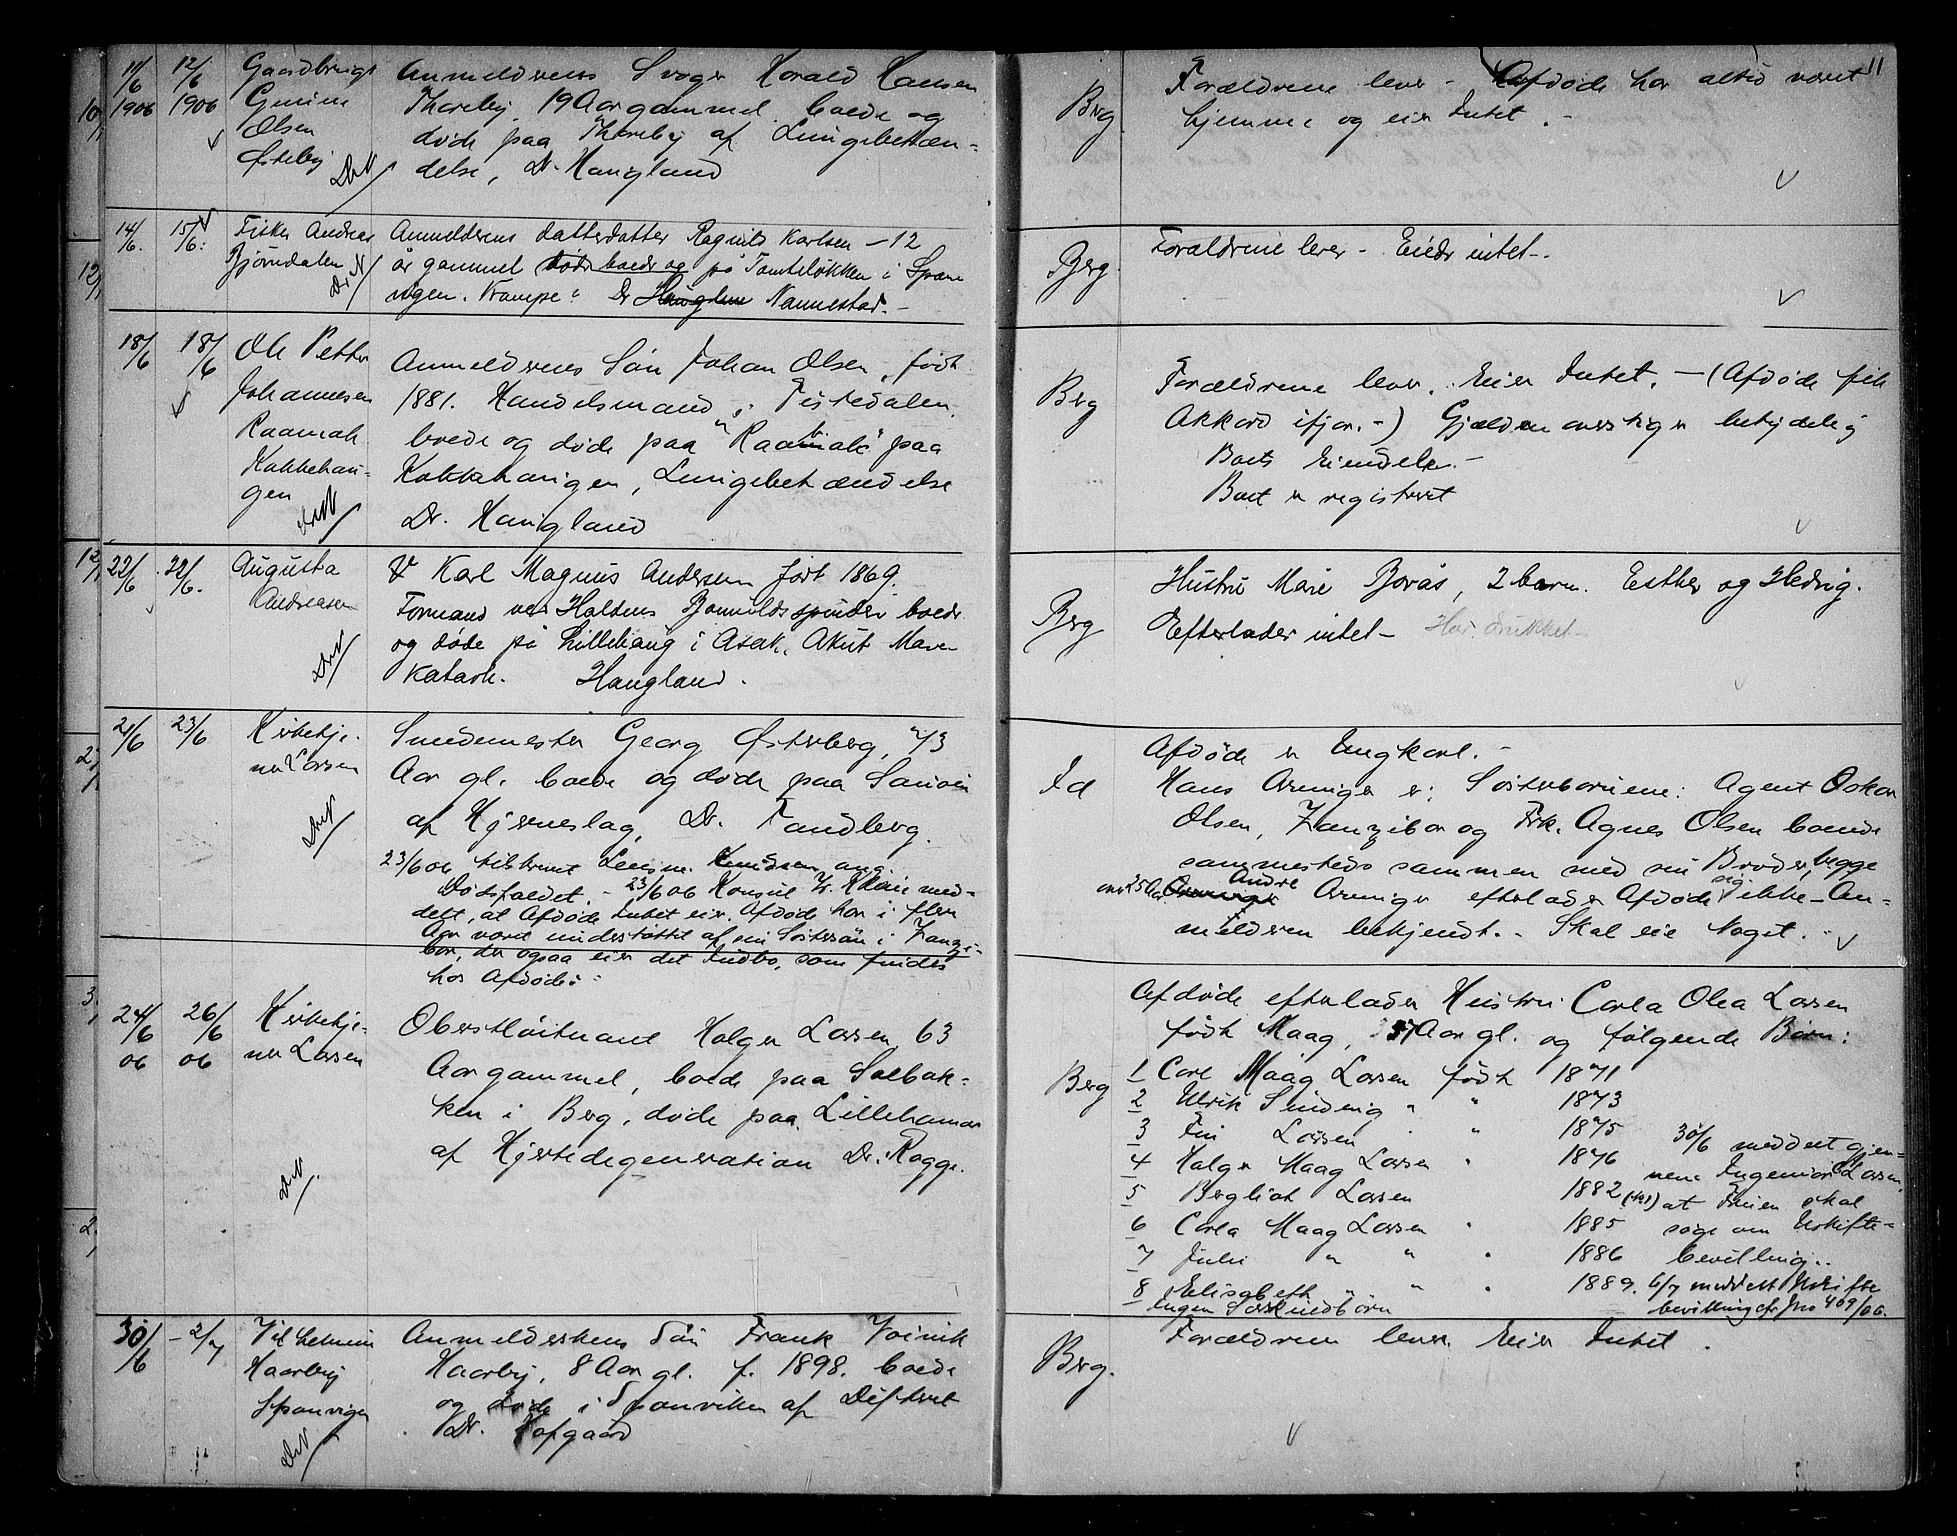 11
11/6 1906
12/6 1906
Gaardbruger
Olsen
Østeby
Anmelderens Svoger Harald Hansen
Thoreby, 19 Aar gammel. boede og
døde paa Thoreby af Lungebetæn-
delse, Dr. Haugland
Berg
Forældrene lever - Afdøde har altid været
hjemme og eier Intet. -
14/6.
15/6.
Fisker Andreas
Bjørndalen
Anmelderens datterdatter Ragnild Karlsen - 12
år gammel boede og på Tomteløkken i Spon
vigen. Krampe. Dr Nannestad. -
Berg.
Forældrene lever - Eiede intet -.
18/6
18/6
Ole Petter
Johannesen
Kokkehau-
gen
Anmelderens Søn Johan Olsen, født
1881. Handelsmand i Tistedalen.
boede og døde paa paa
Kokkehaugen, Lungebetændelse
Dr. Haugland
Berg
Forældrene lever. Eier Intet. - (Afdøde fik
Akkord ifjor. -) Gjælden overstiger betydelig
Boets Eiendele. -
Boet er registreret
22/6
22/6.
Augusta
Andreasen
Karl Magnus Andersen født 1869.
Formand ved Haldens Bomuldsspinderi boede
og døde på Lillehaug i Asak. Akut Mave
Katarh. Haugland.
Berg
Hustru Marie Borås, 2 barn. Esther og Hedvig.
Efterlader intet - Har drukket -
21/6
23/6
Kirketje-
ner Larsen
Smedemester Georg Østerberg, 73
Aar gl. boede og døde paa
af Hjerneslag, Dr. Tandberg.
23/6 06 Lensm. Knudsen ang.
Dødsfaldet. - 23/6 06 Konsul Klein med-
delt, at Afdøde Intet eier. Afdøde har i flere
Aar været understøttet af sin Søstersøn i Zanzi-
bar, der ogsaa eier det Indbo, som findes
hos Afdøde. -
Id
Afdøde er Ungkarl. -
Hans Arvinger er: Søsterbørnene: Agent Oskar
Olsen, Zanzibar og Frk. Agnes Olsen boende
sammesteds sammen med sin Broder, begge
over 25 Aar. Andre Arvinger efterlader Afdøde sig ikke - An-
melderen bekjendt. - Skal eie Noget. -
24/6 06
26/6 06
Kirketje-
ner Larsen
Oberstløitnant Holger Larsen, 63
Aar gammel, boede paa Solbak-
ken i Berg, døde paa Lillehamar
af Hjertedegeneration Dr. Rogge.
Berg
Afdøde efterlader Hustru Carla Olea Larsen
født Maag, 57 Aar gl. og følgende Børn:
1 Carl Maag Larsen født 1871
2 Ulrik Sinding " " 1873
3 Finn Larsen " " 1875
4 Holger Maag Larsen " 1876
5 Bergliot Larsen 1882
6 Carla Maag Larsen " 1885
7 Julie " " " 1886
8 Elisabeth " " " 1889.
Ingen Særkuldbørn
30/6 meddelt gjen-
nem Ingeniør Larsen,
at Fruen skal
søge om Uskifte-
bevilling..
6/7 meddelt Uskifte
bevilling cfr Jno 409/06.
30/6
- 2/7
Vilhelmine
Haarby
Sponvigen
Anmelderskens Søn Frank
Haarby, 8 Aar gl. f. 1898. boede
og døde i Sponviken af Difterit
Dr. Hofgaard
Berg.
Forældrene lever. Eier Intet.